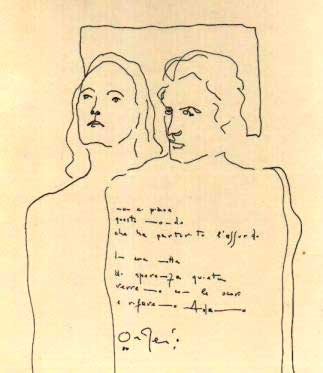 non ci piace
questo mondo
che ha partorito l'assurdo
In una notte
di speranza quieta
verremo con le
e rifaremo Adamo